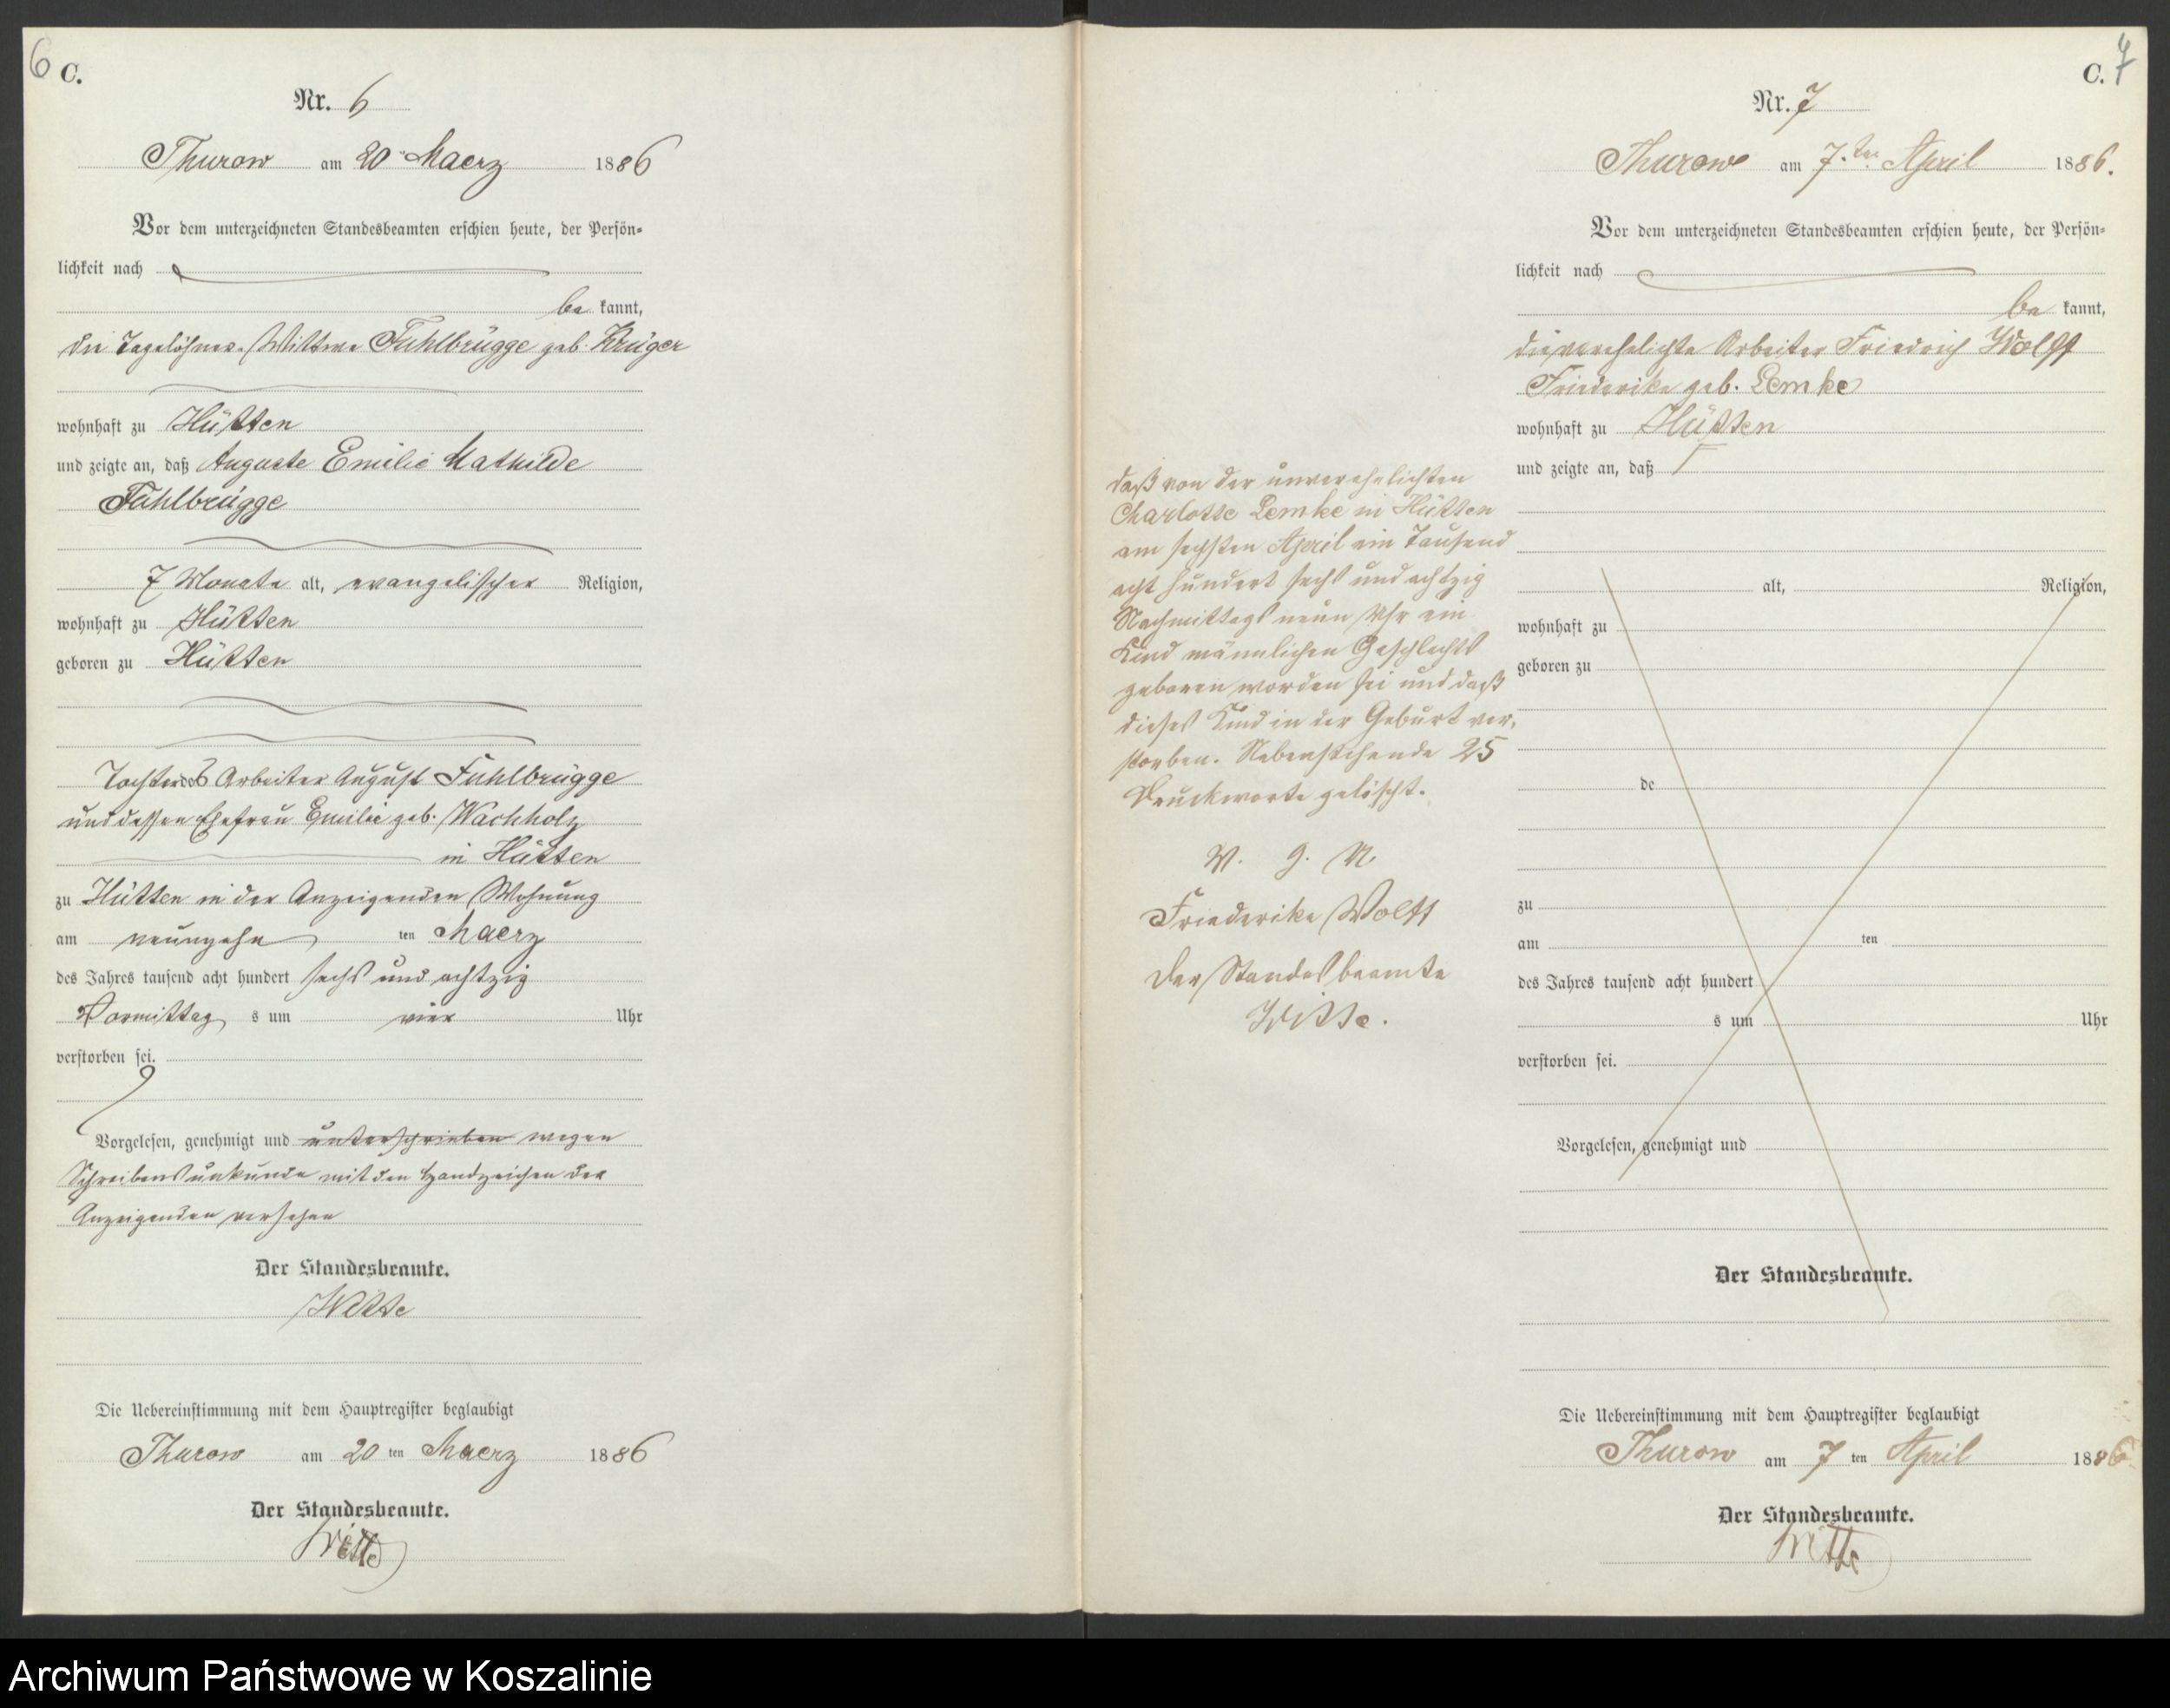 6 C.
Nr. 6
Thurow am 20 Maerz 1886
Vor dem unterzeichneten Standesbeamten erschien heute, der Persön-
lichkeit nach
be kannt,
die Tagelöhner-Wittwe Fuhlbrügge geb. Krüger
wohnhaft zu Hütten
und zeigte an, daß Auguste Emilie Mathilde
Fuhlbrügge
7 Monate alt, evangelischer Religion,
wohnhaft zu Hütten
geboren zu Hütten
Tochter des Arbeiter August Fuhlbrügge
und dessen Ehefrau Emilie geb. Wachholz
in Hütten
zu Hütten in der Anzeigenden Wohnung
am neunzehn ten Maerz
des Jahres tausend acht hundert sechs und achtzig
Vormittag s um vier Uhr
verstorben sei.
Vorgelesen, genehmigt und unterschrieben wegen
Schreibensunkunde mit den Handzeichen der
Anzeigenden versehen
Der Standesbeamte.
Witte
Die Uebereinstimmung mit dem Hauptregister beglaubigt
Thurow am 20 ten Maerz 1886
Der Standesbeamte.
Witte
C. 7
Nr. 7
Thurow am 7. ten April 1886.
Vor dem unterzeichneten Standesbeamten erschien heute, der Persön-
lichkeit nach
be kannt,
die verehelichte Arbeiter Friedrich Wolff
Friederike geb. Lemke
wohnhaft zu Hütten
und zeigte an, daß
daß von der unverehelichten
Charlotte Lemke in Hütten
am sechsten April ein Tausend
acht hundert sechs und achtzig
Nachmittags neun Uhr ein
Kind männlichen Geschlechts
geboren worden sei und daß
dieses Kind in der Geburt ver-
storben. Nebenstehende 25
Druckworte gelöscht.
V. g. U.
Friederike Wolff
Der Standesbeamte
Witte.
alt, Religion,
wohnhaft zu
geboren zu
de
zu
am ten
des Jahres tausend acht hundert
s um Uhr
verstorben sei.
Vorgelesen, genehmigt und
Der Standesbeamte.
Die Uebereinstimmung mit dem Hauptregister beglaubigt
Thurow am 7 ten April 1886.
Der Standesbeamte.
Witte
Archiwum Państwowe w Koszalinie